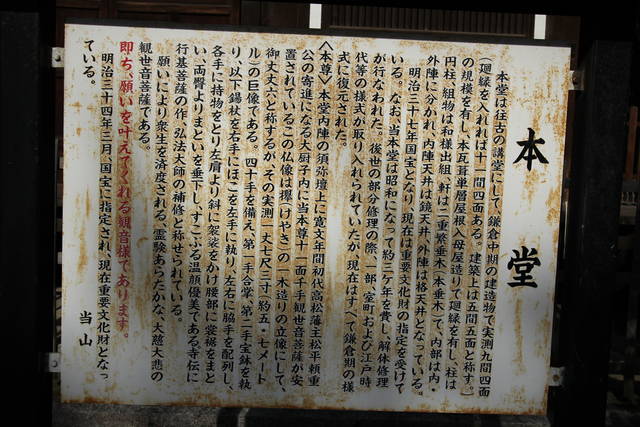 本堂
本堂は往古の講堂にして、鎌倉中期の建造物で実測九間四面
（廻縁を入れれば十一間四面ある。建築上は五間五面と称す。）
の規模を有し、本瓦葺単層屋根入母屋造りで廻縁を有し、柱は
円柱、組物は和様出組、軒は二重繁垂木（本垂木）で、内部は内・
外陣に分かれ、内陣天井は鏡天井、外陣は格天井となっている。
明治三十七年国宝となり、現在は重要文化財の指定を受けて
いる。なお、当本堂は昭和になって約三ケ年を費し、解体修理
が行なわれた。後世の部分修理の際、一部、室町および江戸時
代等の様式が取り入れられていたが、現在はすべて鎌倉期の様
式に復元された。
〈本尊〉本堂内陣の須弥壇上に寛文年間初代高松藩主松平頼重
公の寄進になる大厨子内に当本尊十一面千手観世音菩薩が安
置されているこの仏像は欅（けやき）の一木造りの立像にして、
御丈丈六と称するが、その実測一丈七尺三寸（約五・七メート
ル）の巨像である。四十手を備え、第一手合掌、第二手宝鉢を執
り、以下錫杖を右手にほこを左手に執り、左右に脇手を配列し、
各手に持物をとり左肩より斜に袈裟をかけ腰部に裳裾をまと
い、両臂よりまといを垂下し、すこぶる温顔優美である寺伝に
行基菩薩の作、弘法大師の補修と称せられている。
願いにより衆生を済度される、霊験あらたかな、大慈大悲の
観世音菩薩である。
即ち、願いを叶えてくれる観音様であります。
明治三十四年三月、国宝に指定され、現在重要文化財となっ
ている。
当山